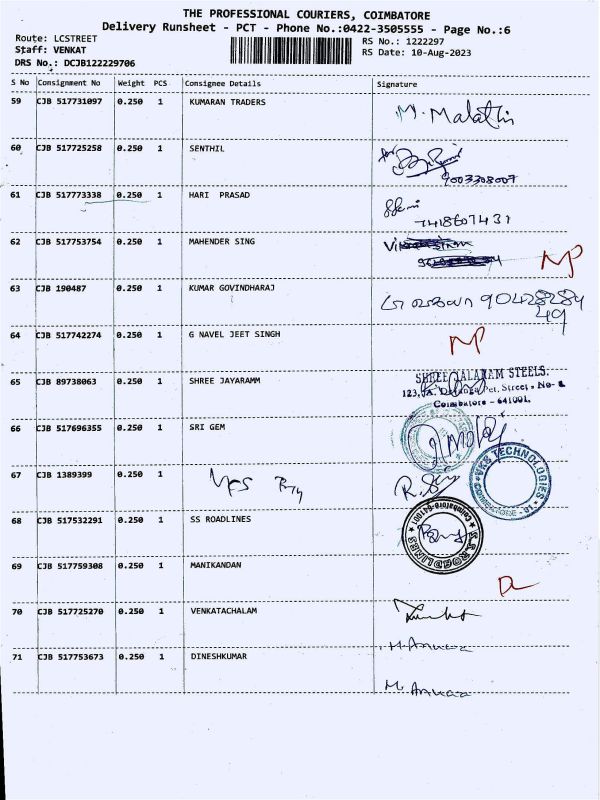 THE PROFESSIONAL COURIERS, COIMBATORE
Delivery Runsheet - PCT - Phone No.:0422-3505555 - Page No.:6
Route: LCSTREET
Staff: VENKAT
DRS No.: DCJB122229706
RS No.: 1222297
RS Date: 10-Aug-2023
S No Consignment No Weight PCS Consignee Details Signature
59 CJB 517731097 0.250 1 KUMARAN TRADERS M. Malathi
60 CJB 517725258 0.250 1 SENTHIL
9003308007
61 CJB 517773338 0.250 1 HARI PRASAD
7418607431
62 CJB 517753754 0.250 1 MAHENDER SING
NP
63 CJB 190487 0.250 1 KUMAR GOVINDHARAJ
64 CJB 517742274 0.250 1 G NAVEL JEET SINGH NP
65 CJB 89738063 0.250 1 SHREE JAYARAMM SHREE BALARAM STEELS.
Pet, Street, No-
Coimbatore - 641001.
66 CJB 517696355 0.250 1 SRI GEM
VKS TECHNOLOGIES
67 CJB 1389399 0.250 1
68 CJB 517532291 0.250 1 SS ROADLINES
S.S. ROADLINES Coimbatore-641001
69 CJB 517759308 0.250 1 MANIKANDAN
70 CJB 517725270 0.250 1 VENKATACHALAM
71 CJB 517753673 0.250 1 DINESHKUMAR